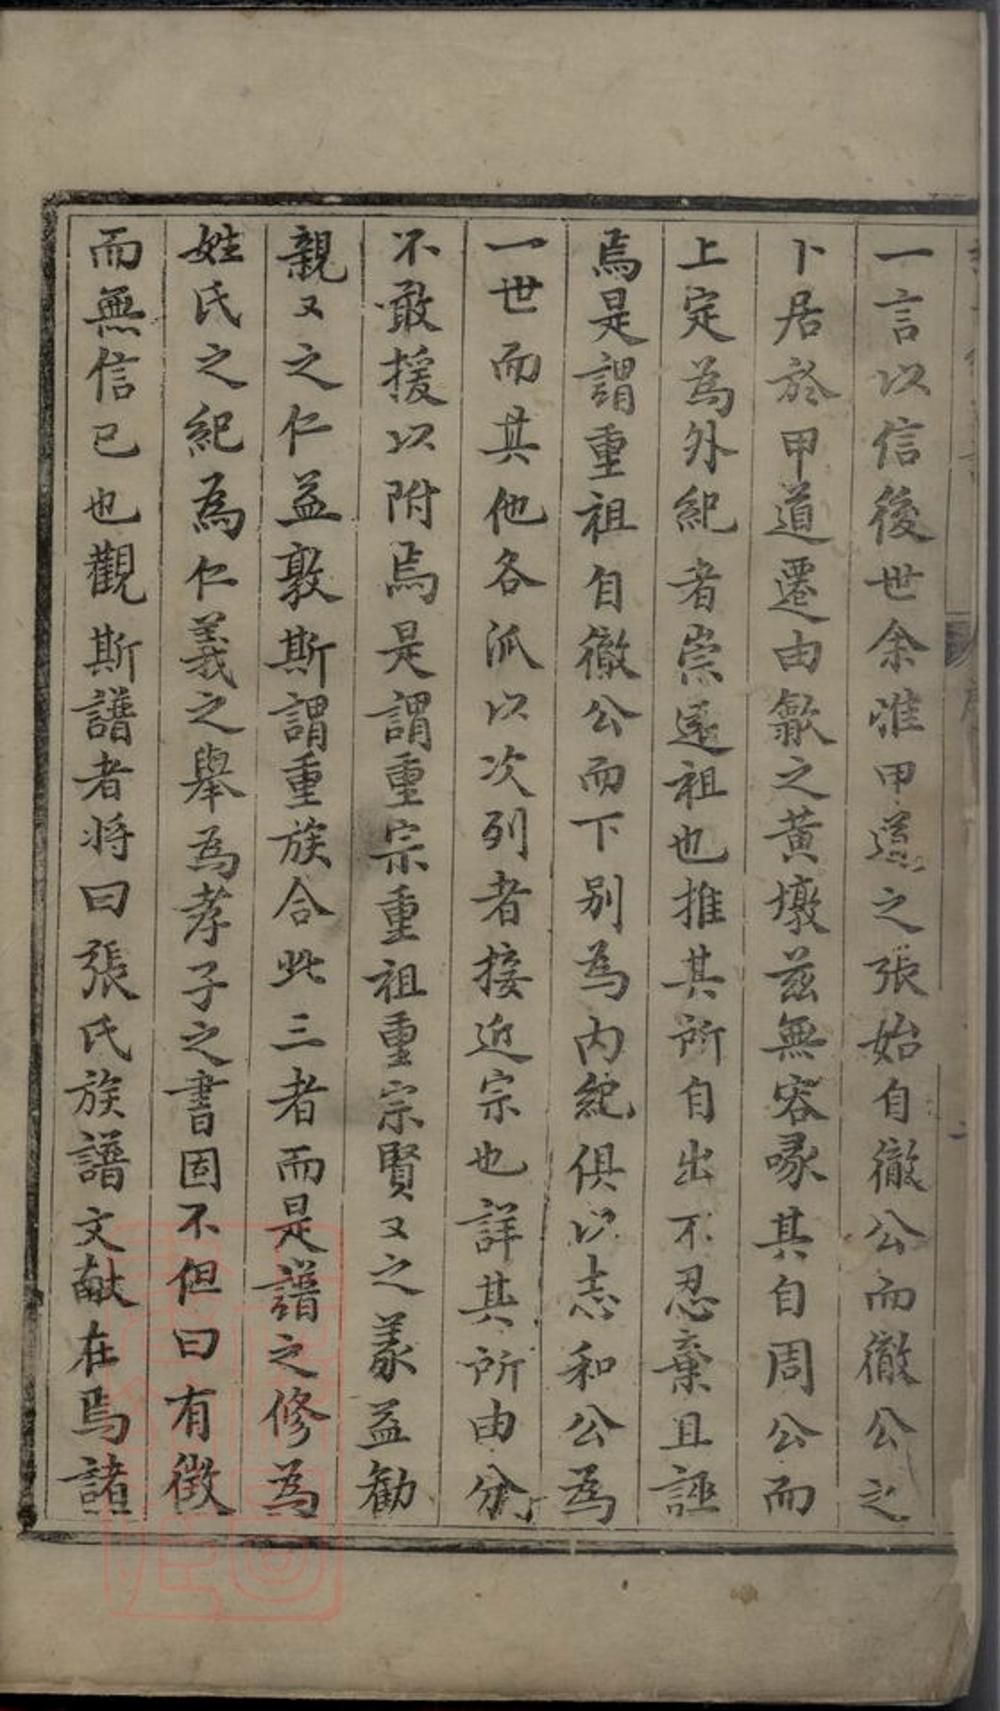 一言以信後世余惟甲道之張始自徹公而徹公之
卜居於甲道遷由歙之黃墩茲無容喙其自周公而
上定為外紀者崇遠祖也推其所自出不忍棄且誣
焉是謂重祖自徹公而下別為內紀俱以志和公為
一世而其他各派以次列者接近宗也詳其所由分
不敢援以附焉是謂重宗重祖重宗賢又之義益勸
親又之仁益敦斯謂重族合此三者而是譜之修為
姓氏之紀為仁義之舉為孝子之書固不但曰有徵
而無信已也觀斯譜者將曰張氏族譜文献在焉諸